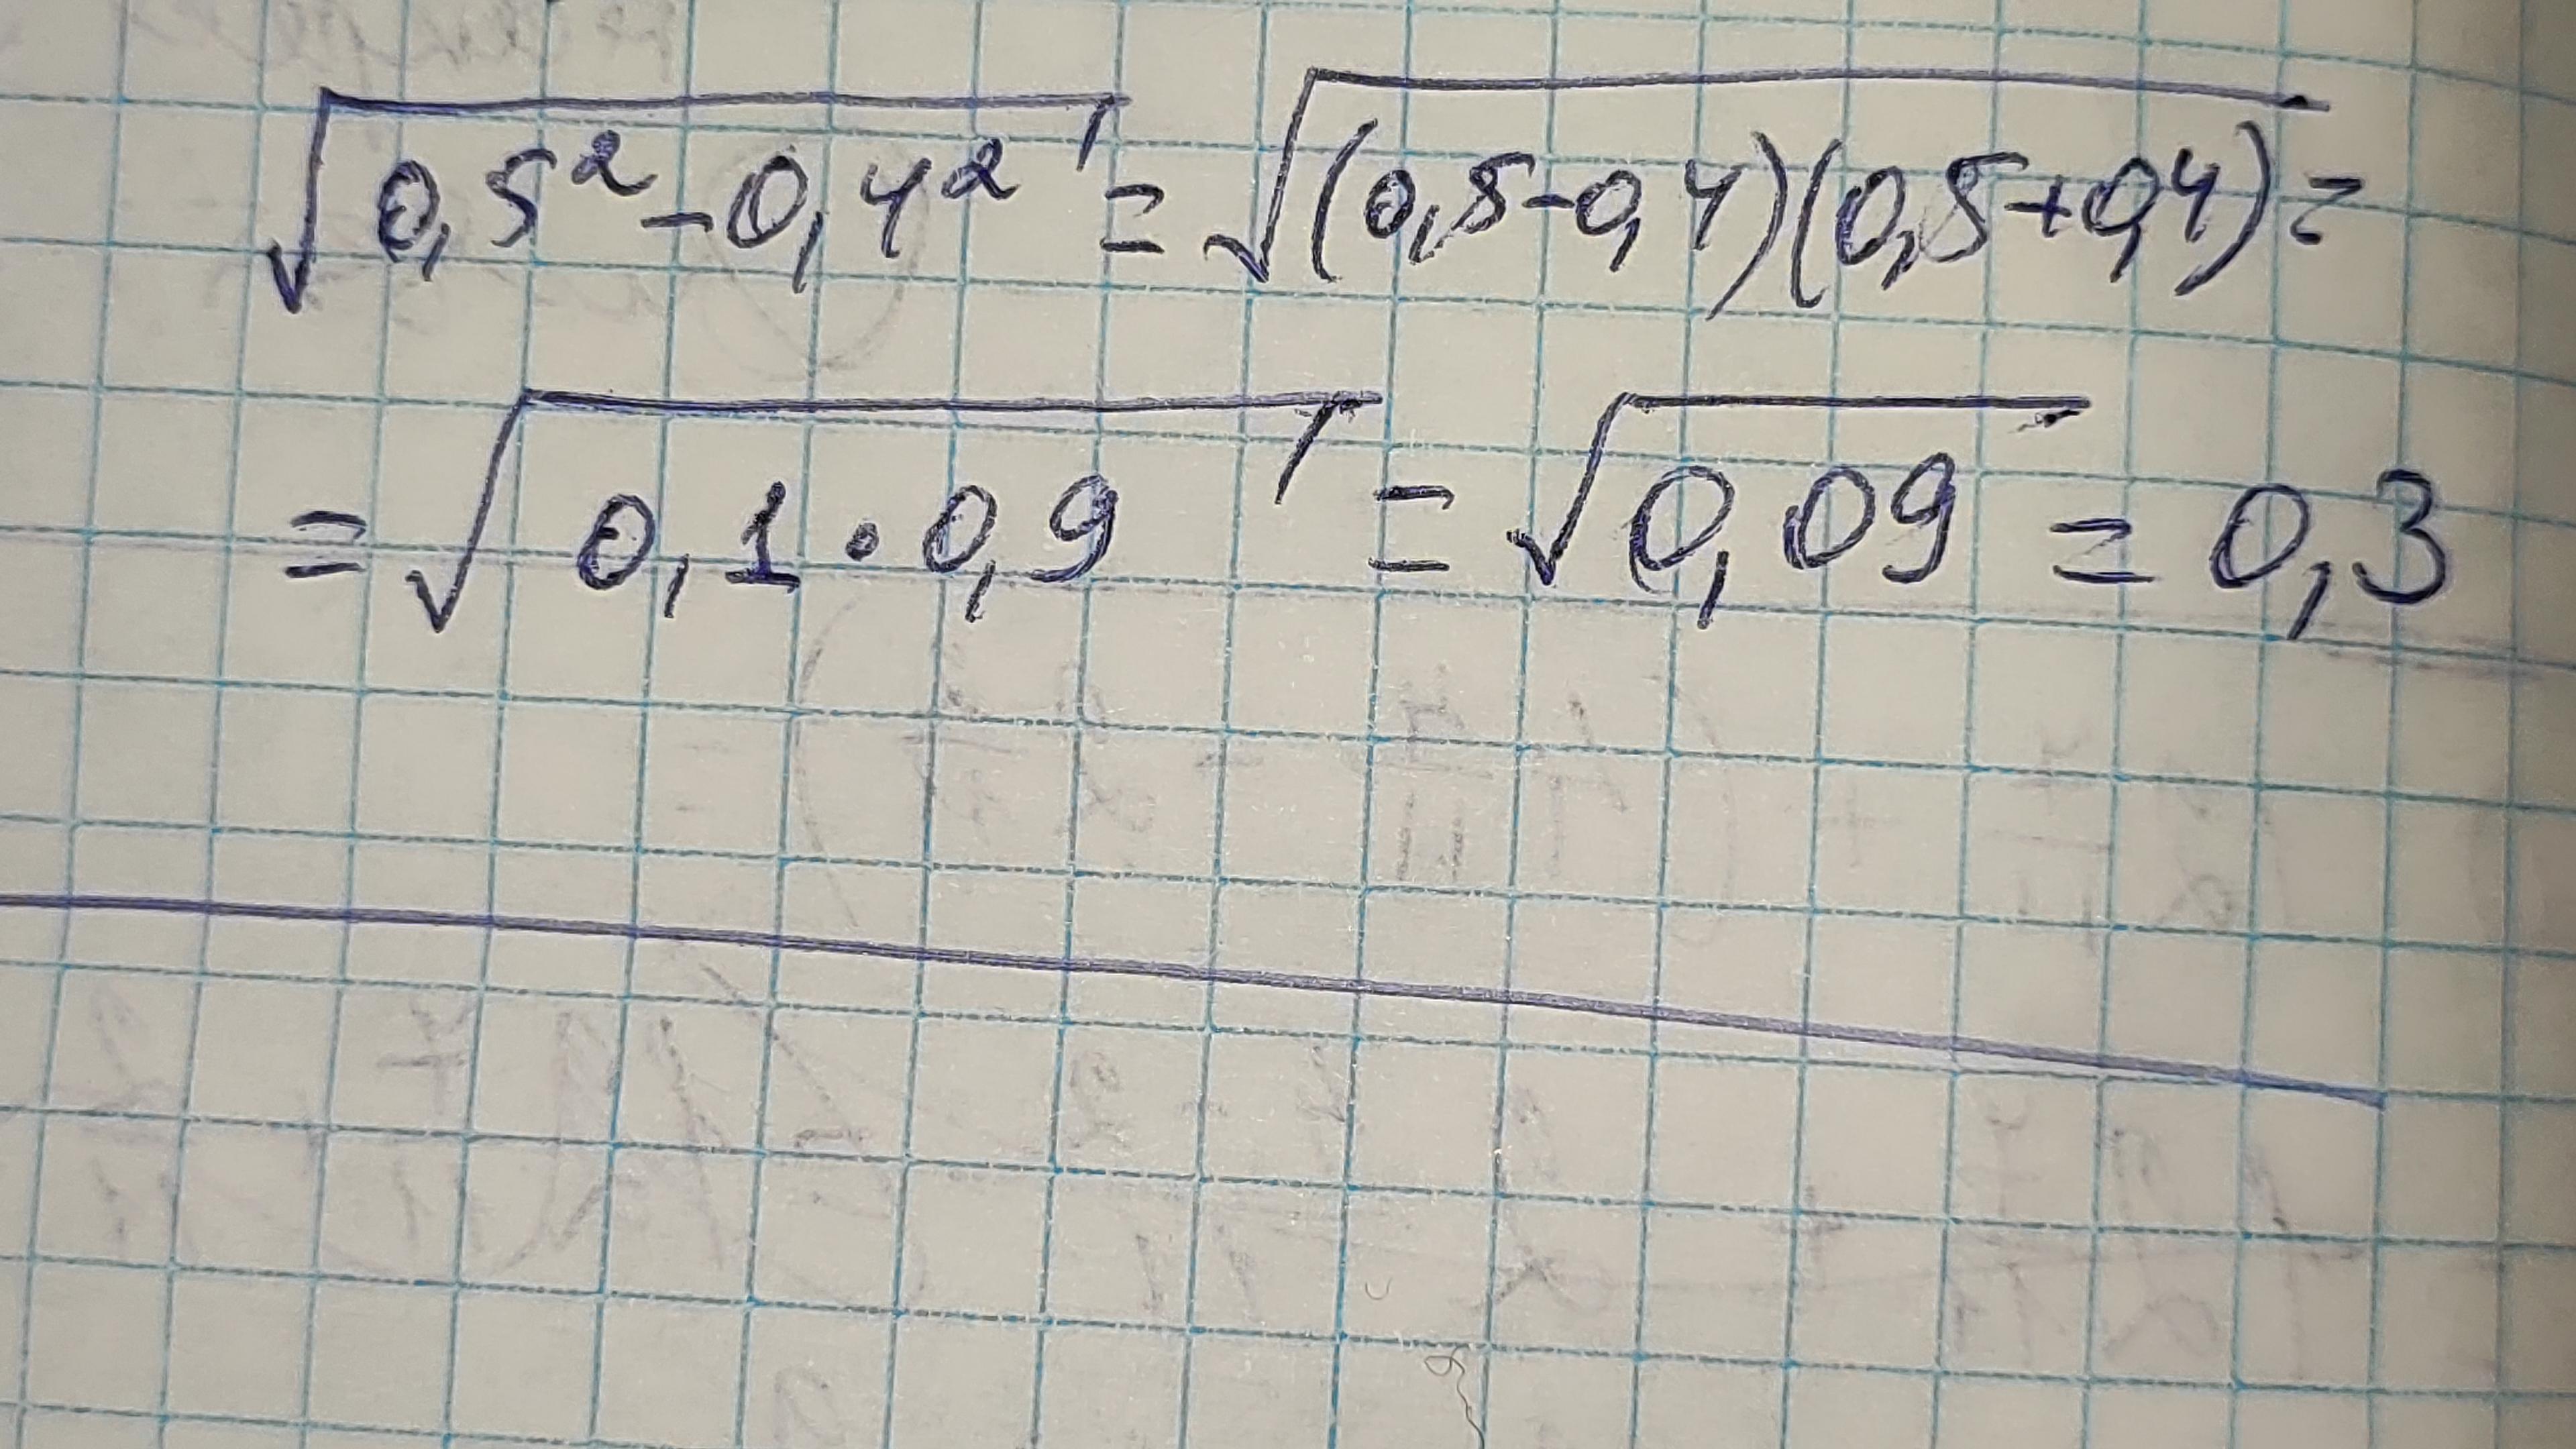 √(0,5² - 0,4²) = √((0,5-0,4)(0,5+0,4)) =
= √(0,1 · 0,9) = √(0,09) = 0,3